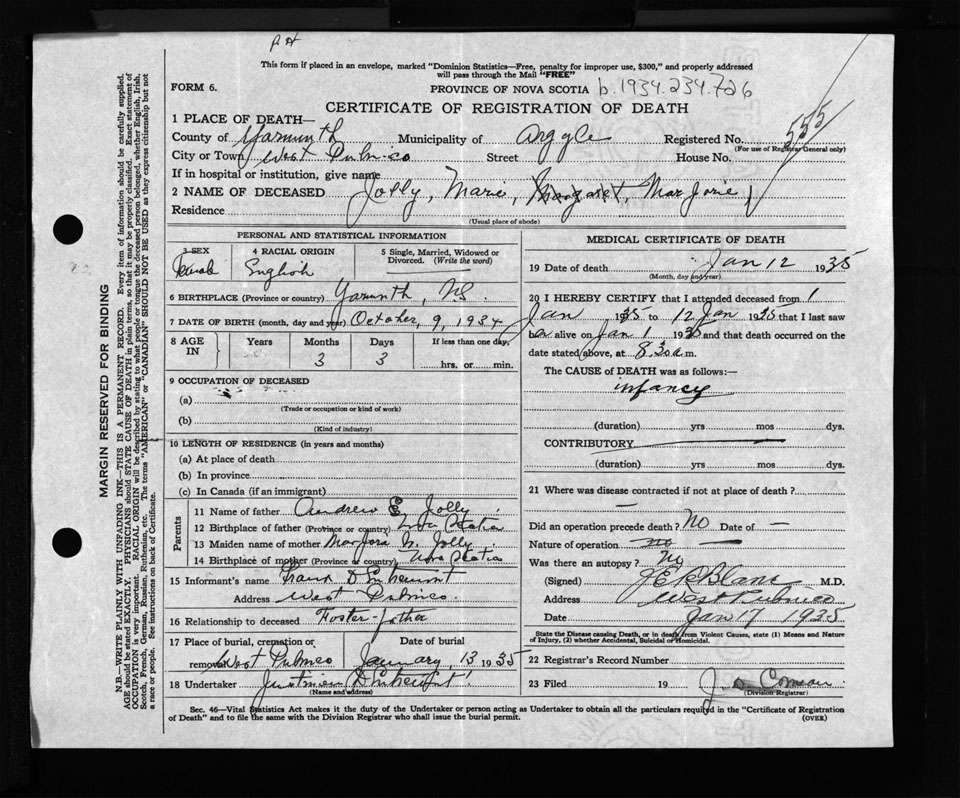 This form if placed in an envelope, marked "Dominion Statistics—Free, penalty for improper use, $300," and properly addressed
will pass through the Mail "FREE"
FORM 6.
PROVINCE OF NOVA SCOTIA b.1934.234.726
CERTIFICATE OF REGISTRATION OF DEATH
1 PLACE OF DEATH—
County of Yarmouth Municipality of Argyle Registered No. 555
(For use of Registrar General only)
City or Town West Pubnico Street House No.
If in hospital or institution, give name
2 NAME OF DECEASED Jolly, Marie, Margaret, Marjorie
Residence
(Usual place of abode)
PERSONAL AND STATISTICAL INFORMATION
3 SEX 4 RACIAL ORIGIN 5 Single, Married, Widowed or
Divorced. (Write the word)
Female English
6 BIRTHPLACE (Province or country) Yarmouth, NS.
7 DATE OF BIRTH (month, day and year) October, 9, 1934
8 AGE
IN
Years Months Days If less than one day
3 3 hrs. or min.
9 OCCUPATION OF DECEASED
(a)
(Trade or occupation or kind of work)
(b)
(Kind of industry)
10 LENGTH OF RESIDENCE (in years and months)
(a) At place of death
(b) In province
(c) In Canada (if an immigrant)
Parents
11 Name of father Andrew E. Jolly
12 Birthplace of father (Province or country) Nova Scotia
13 Maiden name of mother Jolly
14 Birthplace of mother (Province or country) Nova Scotia
15 Informant's name Frank D'Entremont
Address West Pubnico
16 Relationship to deceased Foster-father
17 Place of burial, cremation or
removal West Pubnico
Date of burial
January, 13 1935
18 Undertaker D'Entremont
(Name and address)
MEDICAL CERTIFICATE OF DEATH
19 Date of death Jan 12 1935
(Month, day and year)
20 I HEREBY CERTIFY that I attended deceased from 1
Jan 1935 to 12 Jan 1935 that I last saw
her alive on Jan 1 1935 and that death occurred on the
date stated above, at 8.30 a.m.
The CAUSE of DEATH was as follows:—
infancy
(duration) yrs mos dys.
CONTRIBUTORY
(duration) yrs mos dys.
21 Where was disease contracted if not at place of death?
Did an operation precede death? No Date of —
Nature of operation no —
Was there an autopsy? No
(Signed) LeBlanc M.D.
Address West Pubnico
Date Jan 17 1935
State the Disease causing Death, or in death from Violent Causes, state (1) Means and Nature
of Injury, (2) whether Accidental, Suicidal or Homicidal.
22 Registrar's Record Number
23 Filed 19 Comeau
(Division Registrar)
Sec. 46—Vital Statistics Act makes it the duty of the Undertaker or person acting as Undertaker to obtain all the particulars required in the "Certificate of Registration
of Death" and to file the same with the Division Registrar who shall issue the burial permit.
(OVER)
MARGIN RESERVED FOR BINDING
N.B.—WRITE PLAINLY WITH UNFADING INK—THIS IS A PERMANENT RECORD. Every item of information should be carefully supplied.
AGE should be stated EXACTLY. PHYSICIANS should STATE CAUSE OF DEATH in plain terms, so that it may be properly classified. Exact statement of
OCCUPATION is very important. RACIAL ORIGIN will be described by stating to what people or tongue the deceased person belonged, whether English, Irish,
Scotch, French, German, Russian, Ruthenian, etc. The terms "AMERICAN" or "CANADIAN" SHOULD NOT BE USED as they express citizenship but not
a race or people. See instructions on back of Certificate.